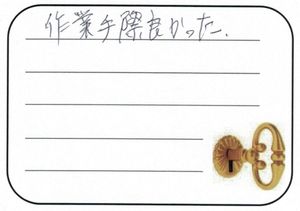 作業手際良かった.